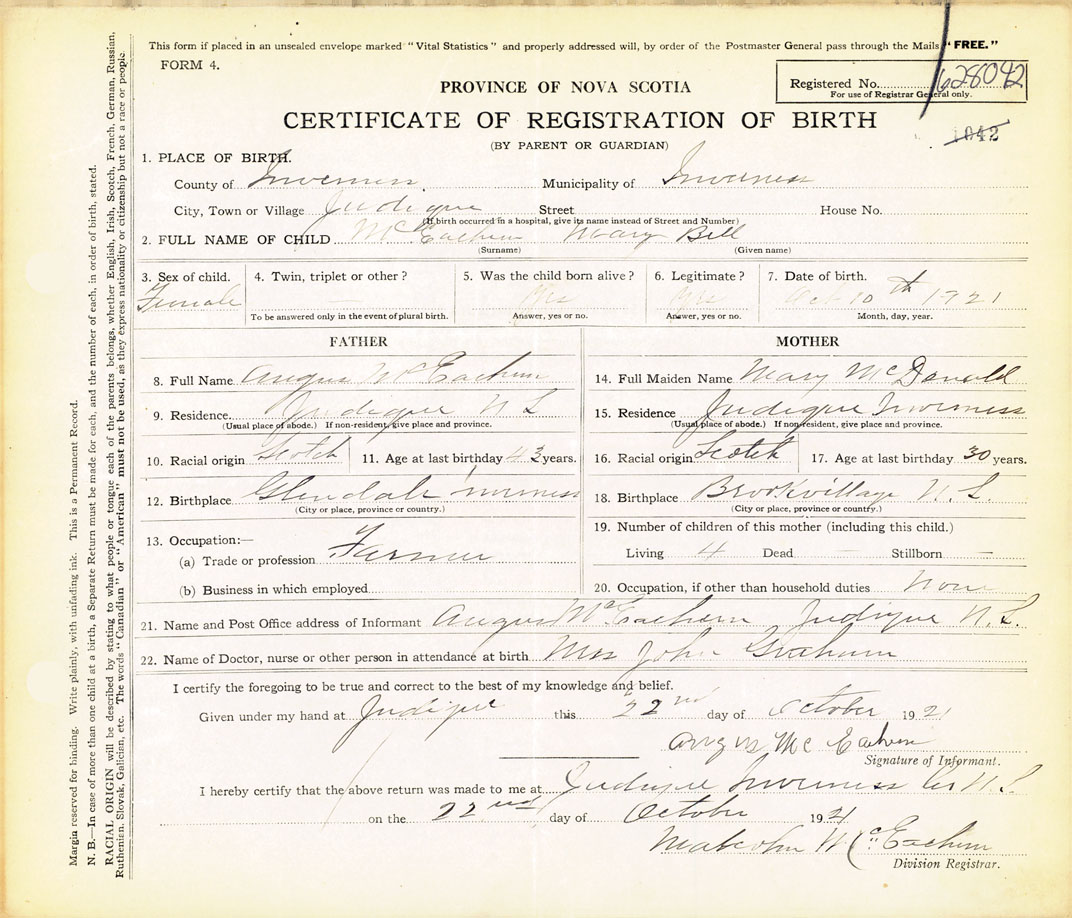 This form if placed in an unsealed envelope marked "Vital Statistics" and properly addressed will, by order of the Postmaster General pass through the Mails "FREE."
FORM 4.
PROVINCE OF NOVA SCOTIA
Registered No. 628042
For use of Registrar General only.
CERTIFICATE OF REGISTRATION OF BIRTH
1042
(BY PARENT OR GUARDIAN)
1. PLACE OF BIRTH.
County of Inverness Municipality of Inverness
City, Town or Village Judique Street House No.
(If birth occurred in a hospital, give its name instead of Street and Number)
2. FULL NAME OF CHILD McEachern Mary Bell
(Surname) (Given name)
3. Sex of child. 4. Twin, triplet or other? 5. Was the child born alive? 6. Legitimate? 7. Date of birth.
Female Yes Yes Oct 10th 1921
To be answered only in the event of plural birth. Answer, yes or no. Answer, yes or no. Month, day, year.
FATHER
8. Full Name Angus McEachern
9. Residence. Judique N S
(Usual place of abode.) If non-resident, give place and province.
10. Racial origin Scotch 11. Age at last birthday 43 years.
12. Birthplace Glendale Inverness
(City or place, province or country.)
13. Occupation:—
(a) Trade or profession Farmer
(b) Business in which employed
MOTHER
14. Full Maiden Name Mary McDonald
15. Residence Judique Inverness
(Usual place of abode.) If non-resident, give place and province.
16. Racial origin Scotch 17. Age at last birthday 30 years.
18. Birthplace Brookvillage N. S.
(City or place, province or country.)
19. Number of children of this mother (including this child.)
Living 4 Dead — Stillborn —
20. Occupation, if other than household duties None
21. Name and Post Office address of Informant Angus McEachern Judique N. S.
22. Name of Doctor, nurse or other person in attendance at birth Mrs John Graham
I certify the foregoing to be true and correct to the best of my knowledge and belief.
Given under my hand at Judique this 22nd day of October 1921
Angus McEachern
Signature of Informant.
I hereby certify that the above return was made to me at Judique Inverness Co N. S.
on the 22nd day of October 1921
Malcolm McEachern
Division Registrar.
Margin reserved for binding. Write plainly, with unfading ink. This is a Permanent Record.
N. B.—In case of more than one child at a birth, a Separate Return must be made for each, and the number of each, in order of birth, stated.
RACIAL ORIGIN will be described by stating to what people or tongue each of the parents belongs, whether English, Irish, Scotch, French, German, Russian,
Ruthenian, Slovak, Galician, etc. The words "Canadian" or "American" must not be used, as they express nationality or citizenship but not a race or people.